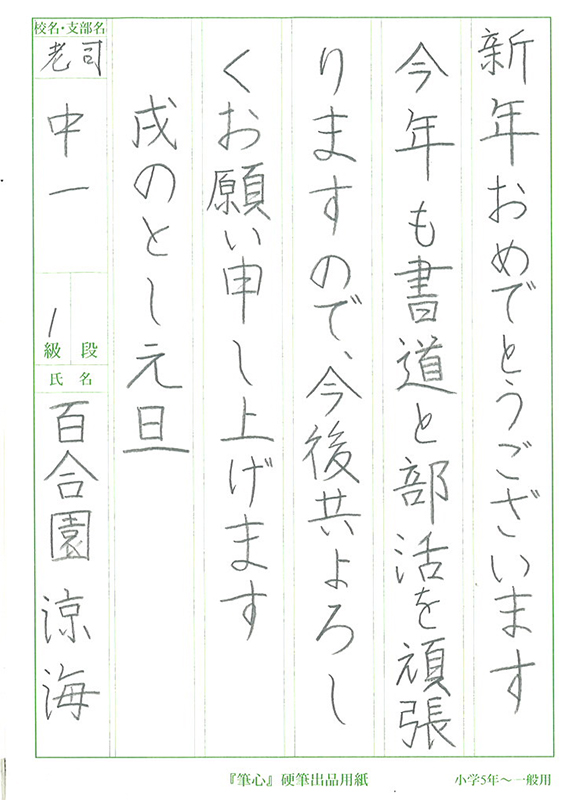 新年おめでとうございます
今年も書道と部活を頑張
りますので、今後共よろし
くお願い申し上げます
戌のとし元旦
校名・支部名
老司
中一
1
級 段
氏 名
百合園 涼海
『筆心』硬筆出品用紙
小学5年〜一般用